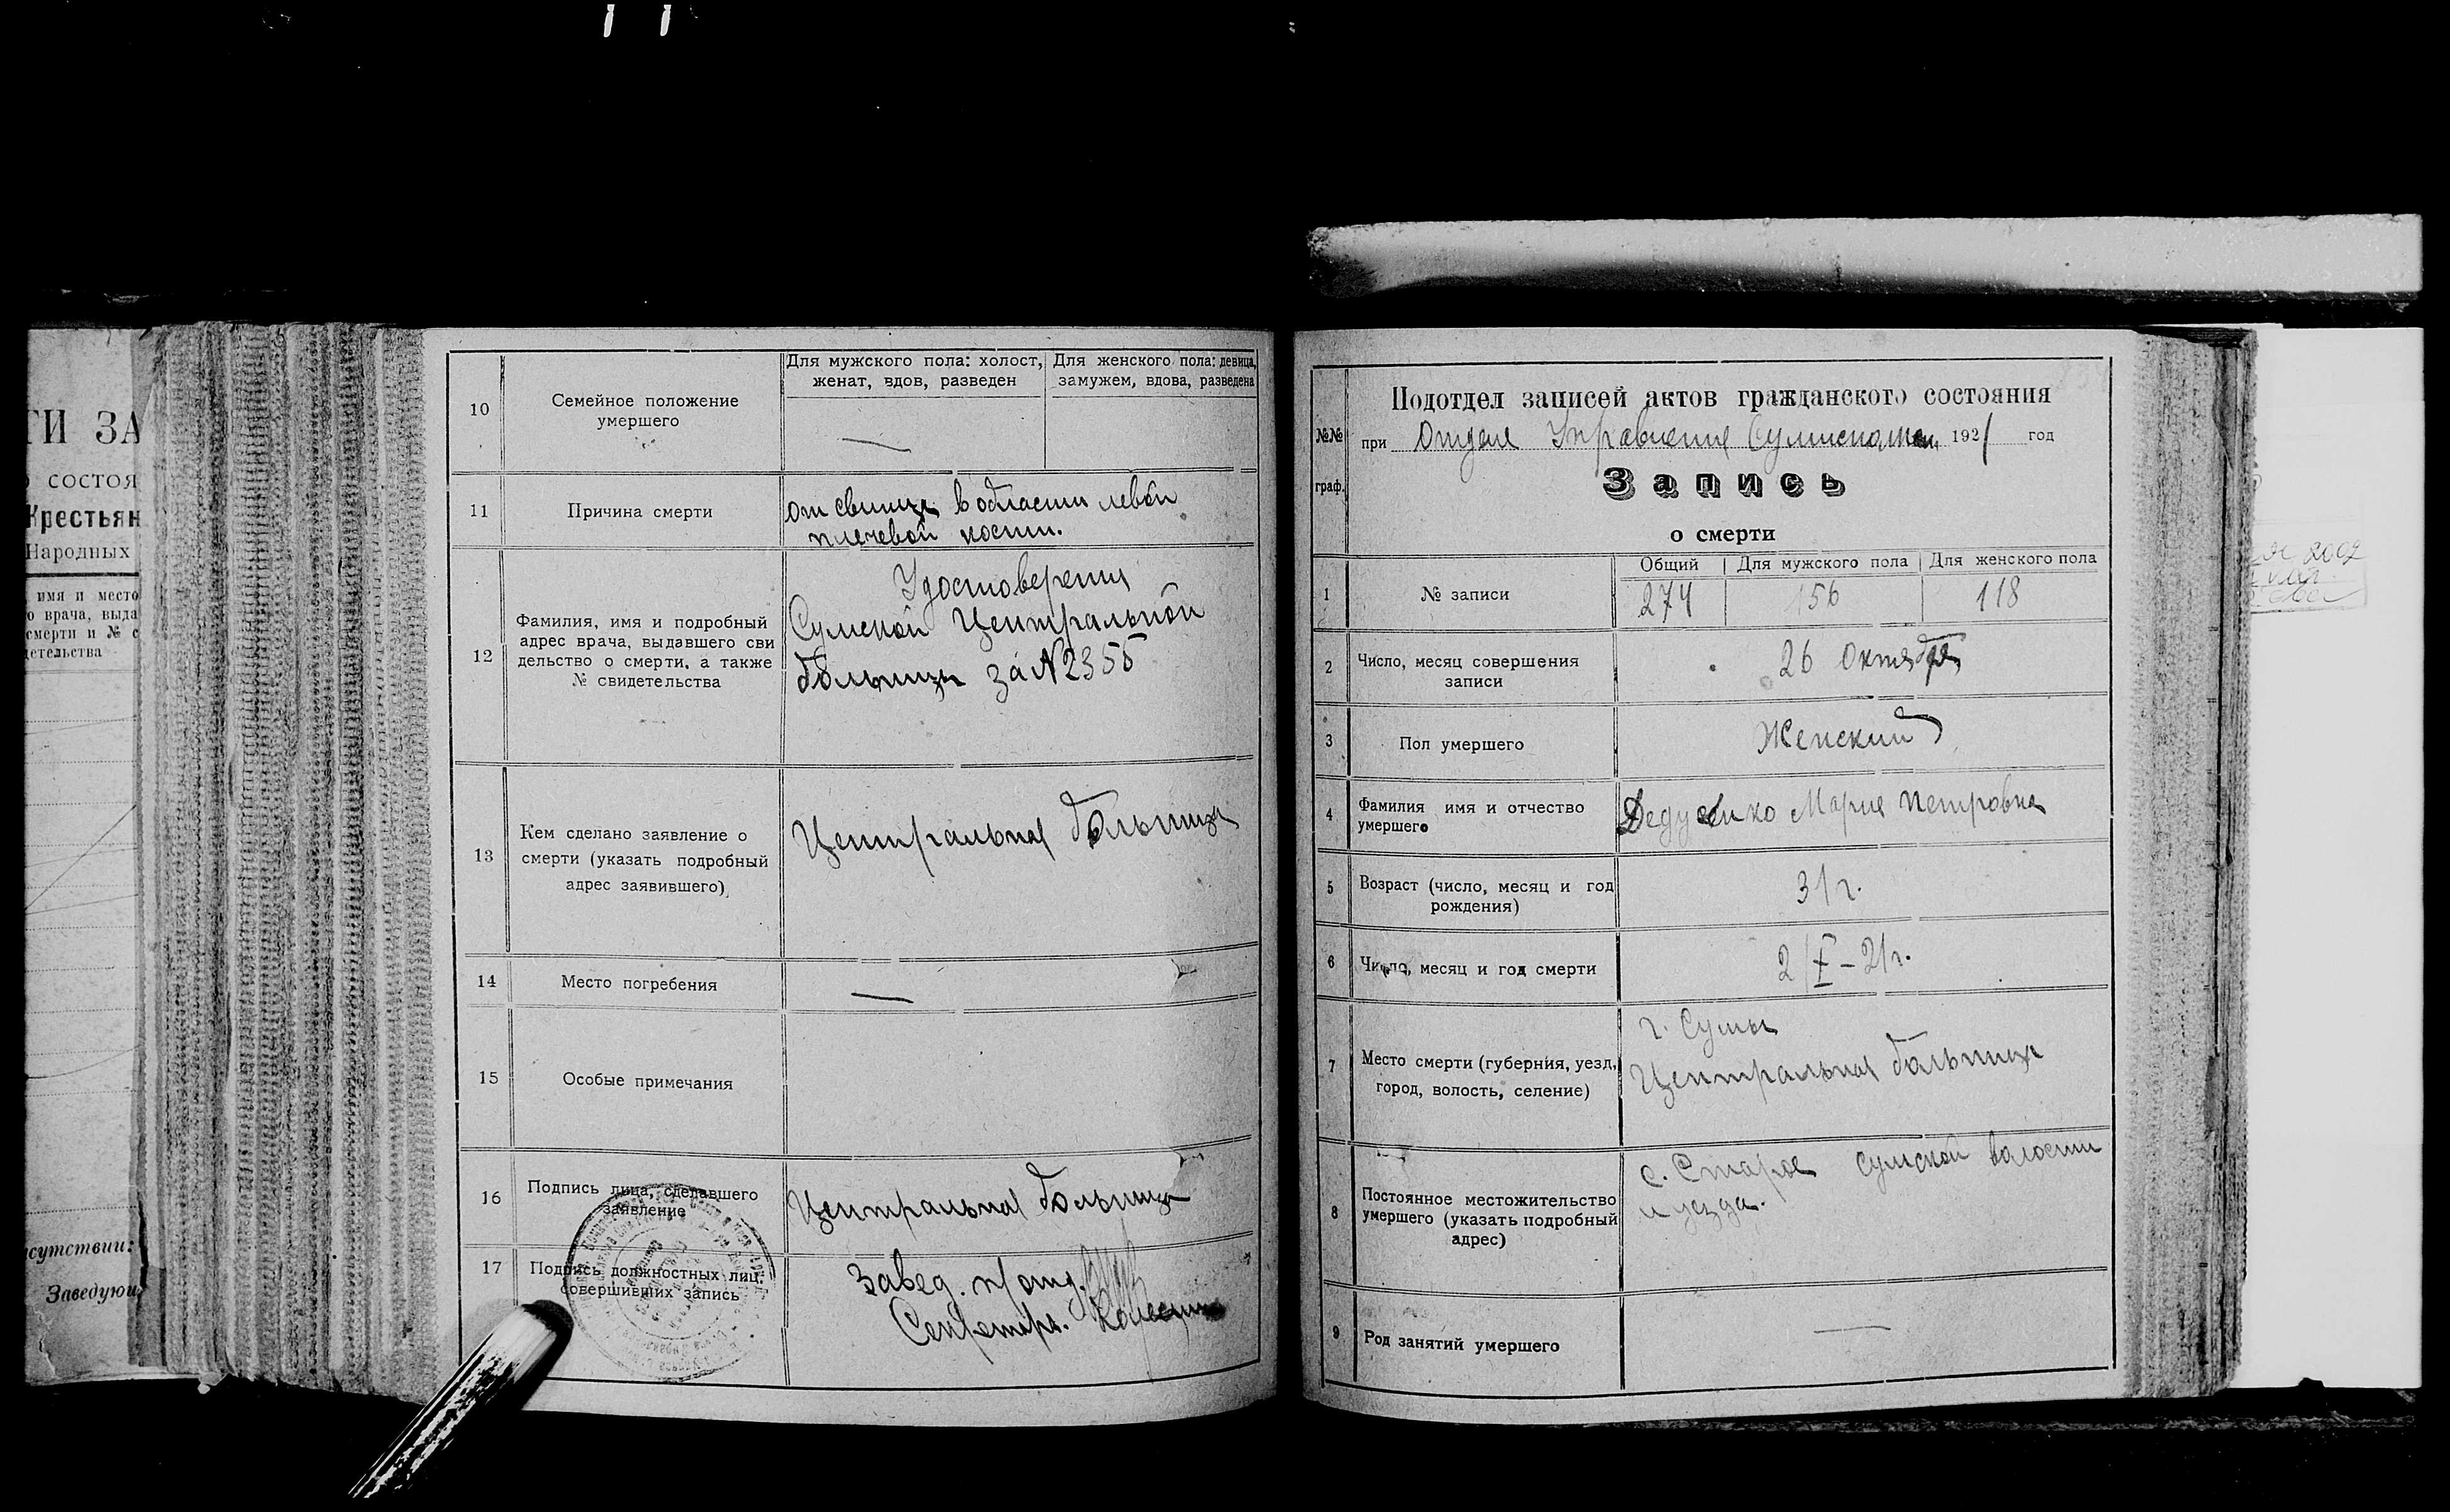 ТИ ЗА
состоя
Крестьян
Народных
имя и место
о врача, выда
смерти и № с
детельства
сутствии:
Заведую
10
Семейное положение
умершего
Для мужского пола: холост,
женат, вдов, разведен
Для женского пола: девица,
замужем, вдова, разведена
—
11
Причина смерти
от свища в области левой
плечевой кости.
12
Фамилия, имя и подробный
адрес врача, выдавшего сви
дельство о смерти, а также
№ свидетельства
Удостоверения
Сумской Центральной
больницы за N2355
13
Кем сделано заявление о
смерти (указать подробный
адрес заявившего)
Центральная больница
14
Место погребения
—
15
Особые примечания
16
Подпись лица, сделавшего
заявление
Центральная больница
17
Подпись должностных лиц,
совершивших запись
Завед. п/отд.
Секретарь.
№№
граф.
Подотдел записей актов гражданского состояния
при Отделе Управления 1921 год
Запись
о смерти
1
№ записи
Общий
Для мужского пола
Для женского пола
274
156
118
2
Число, месяц совершения
записи
26 Октября
3
Пол умершего
Женский
4
Фамилия имя и отчество
умершего
Дедусенко Мария Петровна
5
Возраст (число, месяц и год
рождения)
31 г.
6
Число, месяц и год смерти
2/X – 21 г.
7
Место смерти (губерния, уезд,
город, волость, селение)
г. Сумы
Центральная больница
8
Постоянное местожительство
умершего (указать подробный
адрес)
с. Старое Сумской волости
и уезда.
9
Род занятий умершего
—
2002